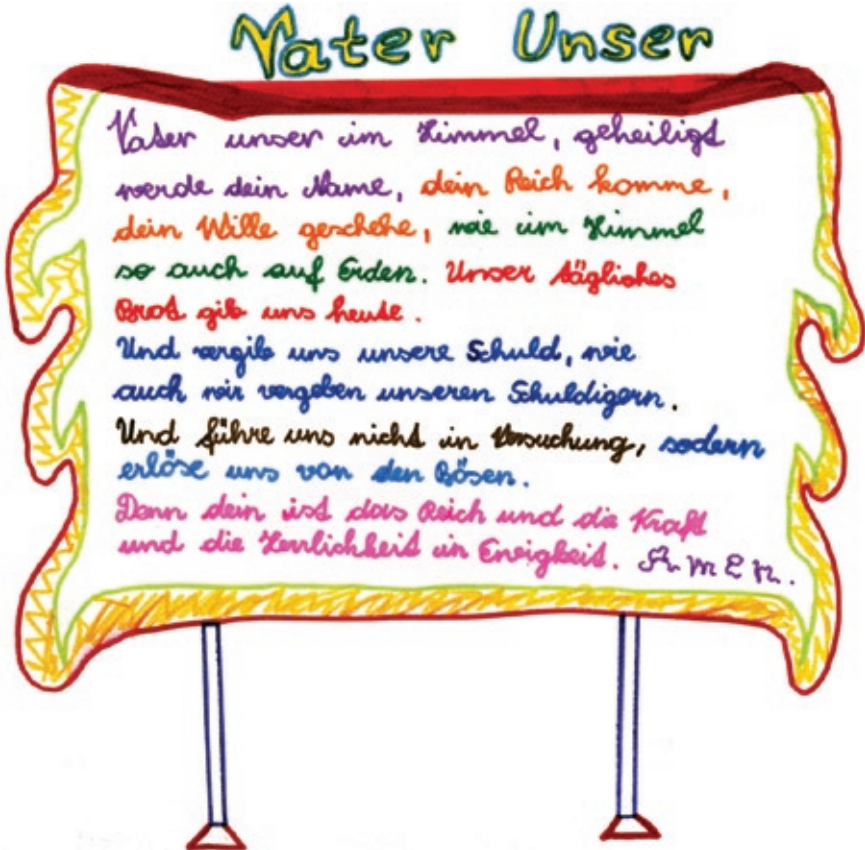 Vater Unser
Vater unser im Himmel, geheiligt
werde dein Name, dein Reich komme,
dein Wille geschehe, wie im Himmel
so auch auf Erden. Unser tägliches
Brot gib uns heute.
Und vergib uns unsere Schuld, wie
auch wir vergeben unseren Schuldigern.
Und führe uns nicht in Versuchung, sodern
erlöse uns von den Bösen.
Denn dein ist das Reich und die Kraft
und die Herrlichkeit in Ewigkeit. Amen.